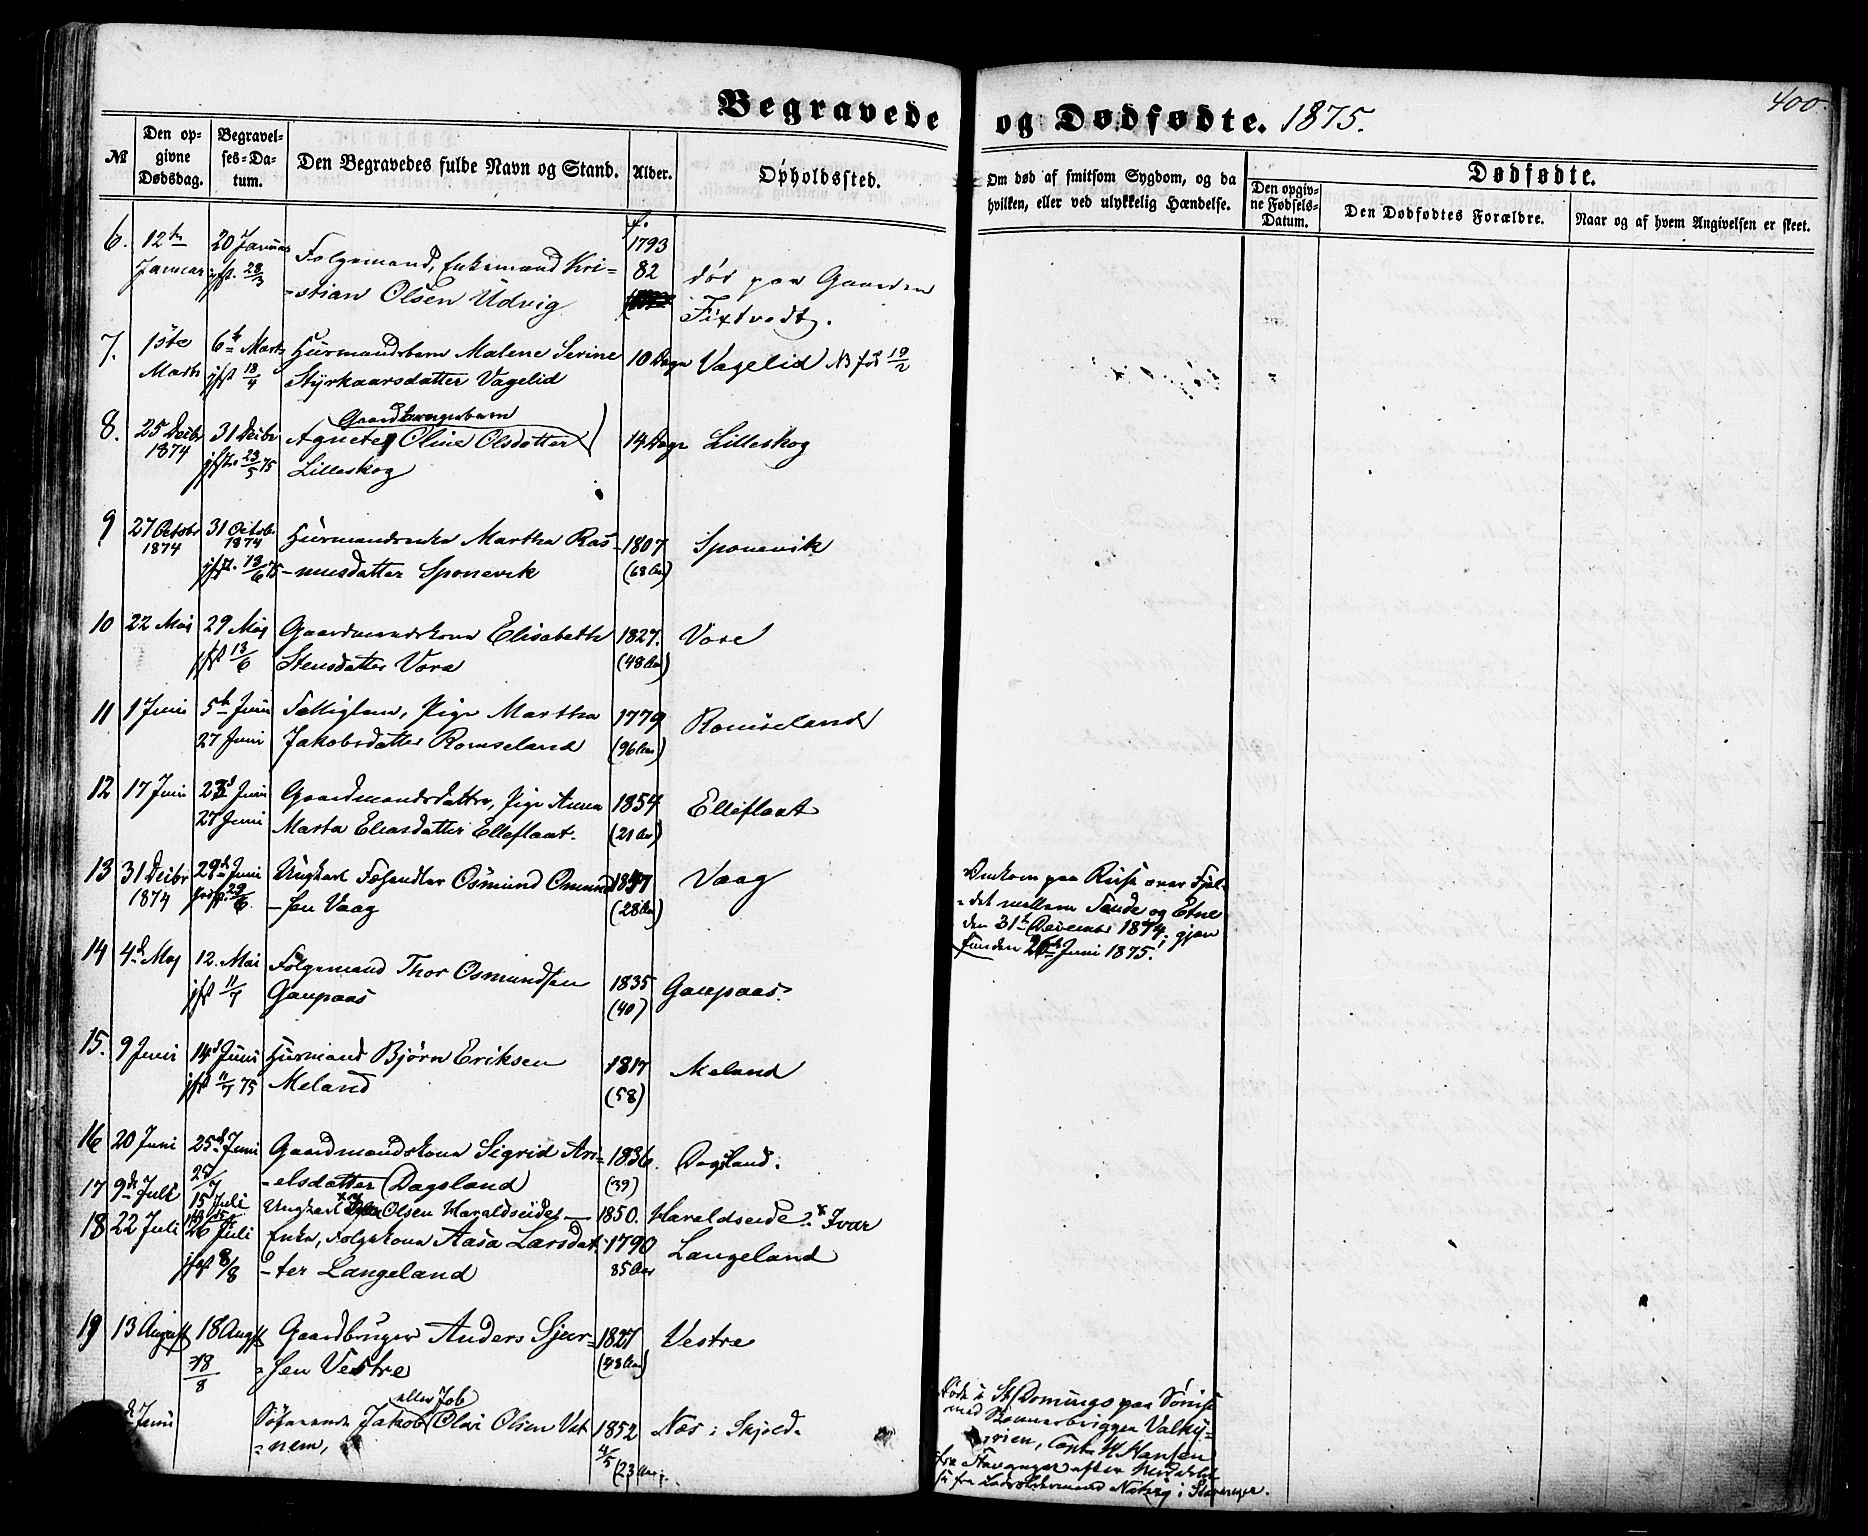 Begravede og Dødfødte. 1875.
400.
№
Den opgivne Dødsdag.
Begravelses-Datum.
Den Begravedes fulde Navn og Stand.
Alder.
Opholdssted.
Om død af smitsom Sygdom, og da hvilken, eller ved ulykkelig Hændelse.
Dødfødte.
Den opgivne Fødsels-Datum.
Den Dødfødtes Forældre.
Naar og af hvem Angivelsen er skeet.
6. 12te 20 Januar Folgemand, Enkemand Kri- f. 1793
Januar jfst. 28/3 -stian Olsen Udvig 82 død paa Gaarden
Tixtvedt.
7. 1ste 6te Marts Husmandsbarn Malene Serine 10 Dage Vagelid NB fød 19/2
Marts jfst 18/4 Styrkaarsdatter Vagelid
Gaardbrugerbarn
8. 25 Decbr 31 Decbr Agnete Oline Olsdatter 14 Dage Lilleskog
1874 jfst. 23/5 75 Lilleskog
9 27 Octobr 31 Octobr Husmandsenke Martha Ras- 1807 Sponevik
1874 1874
jfst. 13/6 75 -musdatter Sponevik (68 Aar)
10 22 Mai 29 Mai Gaardmandskone Elisabeth 1827. Vore
jfst 13/6 Stensdatter Vora (48 Aar)
11 1 Juni 5te Juni Fattiglem, Pige Martha 1779 Romseland
27 Juni Jakobsdatter Romseland (96 Aar)
12 17 Juni 23d Juni Gaardmandsdatter, Pige Anna 1854 Elleflaat
27 Juni Marta Eliasdatter Elleflaat. (21 Aar)
13 31 Decbr 29de Juni Ungkarl Fæhandler Osmund Omund 1847 Vaag
1874 jordf. 29/6 -sen Vaag (28 Aar)
Omkom paa Reise over Fjel-
-det mellem Sande og Etne
den 31te December 1874; gjen
funden 26de Juni 1875.
14 4de Maj 12. Mai Folgemand Thor Osmundsen 1835 Gaupaas.
jfst 11/7 Gaupaas (40)
15. 9 Juni 14d Juni Husmand Bjørn Eriksen 1817 Meland
jfst 11/7 75 Meland (58)
16 20 Juni 25d Juni Gaardmandskone Sigrid Ari- 1836. Dagsland.
25/7 -elsdatter Dagsland (39)
17 9de Juli 15 Juli Ungkarl Olsen Haraldseide 1850. Haraldseide. x Ivar
18 22 Juli 26 Juli Enke, Folgekone Aasa Larsdat- 1790 Langeland
jfst 8/8 -ter Langeland 85 Aar
19 13 August 18 August Gaardbruger Anders Sjur- 1827 Vestre
18/8 -sen Vestre (48 Aar)
eller Job
Juni Søfarende Jakob Olai Olsen Vat 1852 Næs i Skjold.
-nem, 4/5 (23 Aar)
Døde i St Domingo paa Søreise
med Skonnertbriggen Valky-
-rien, Capt. H. Hansen
fra Stavanger efter Meddelel
se fra Lodsoldermand Natvig i Stavanger.